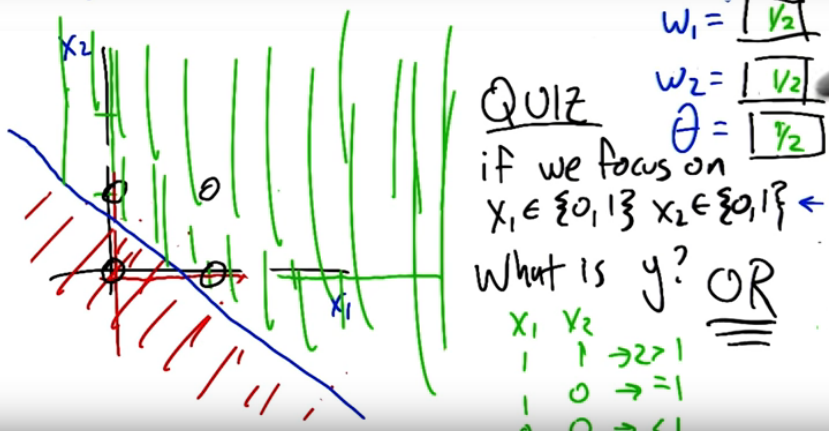 X2
W1 = 1/2
W2 = 1/2
θ = 1/2
QUIZ
if we focus on
X1 ∈ {0,1} X2 ∈ {0,1} ←
What is y? OR
X1
X1 X2
1 1 → 2 > 1
1 0 → = 1
0 → < 1